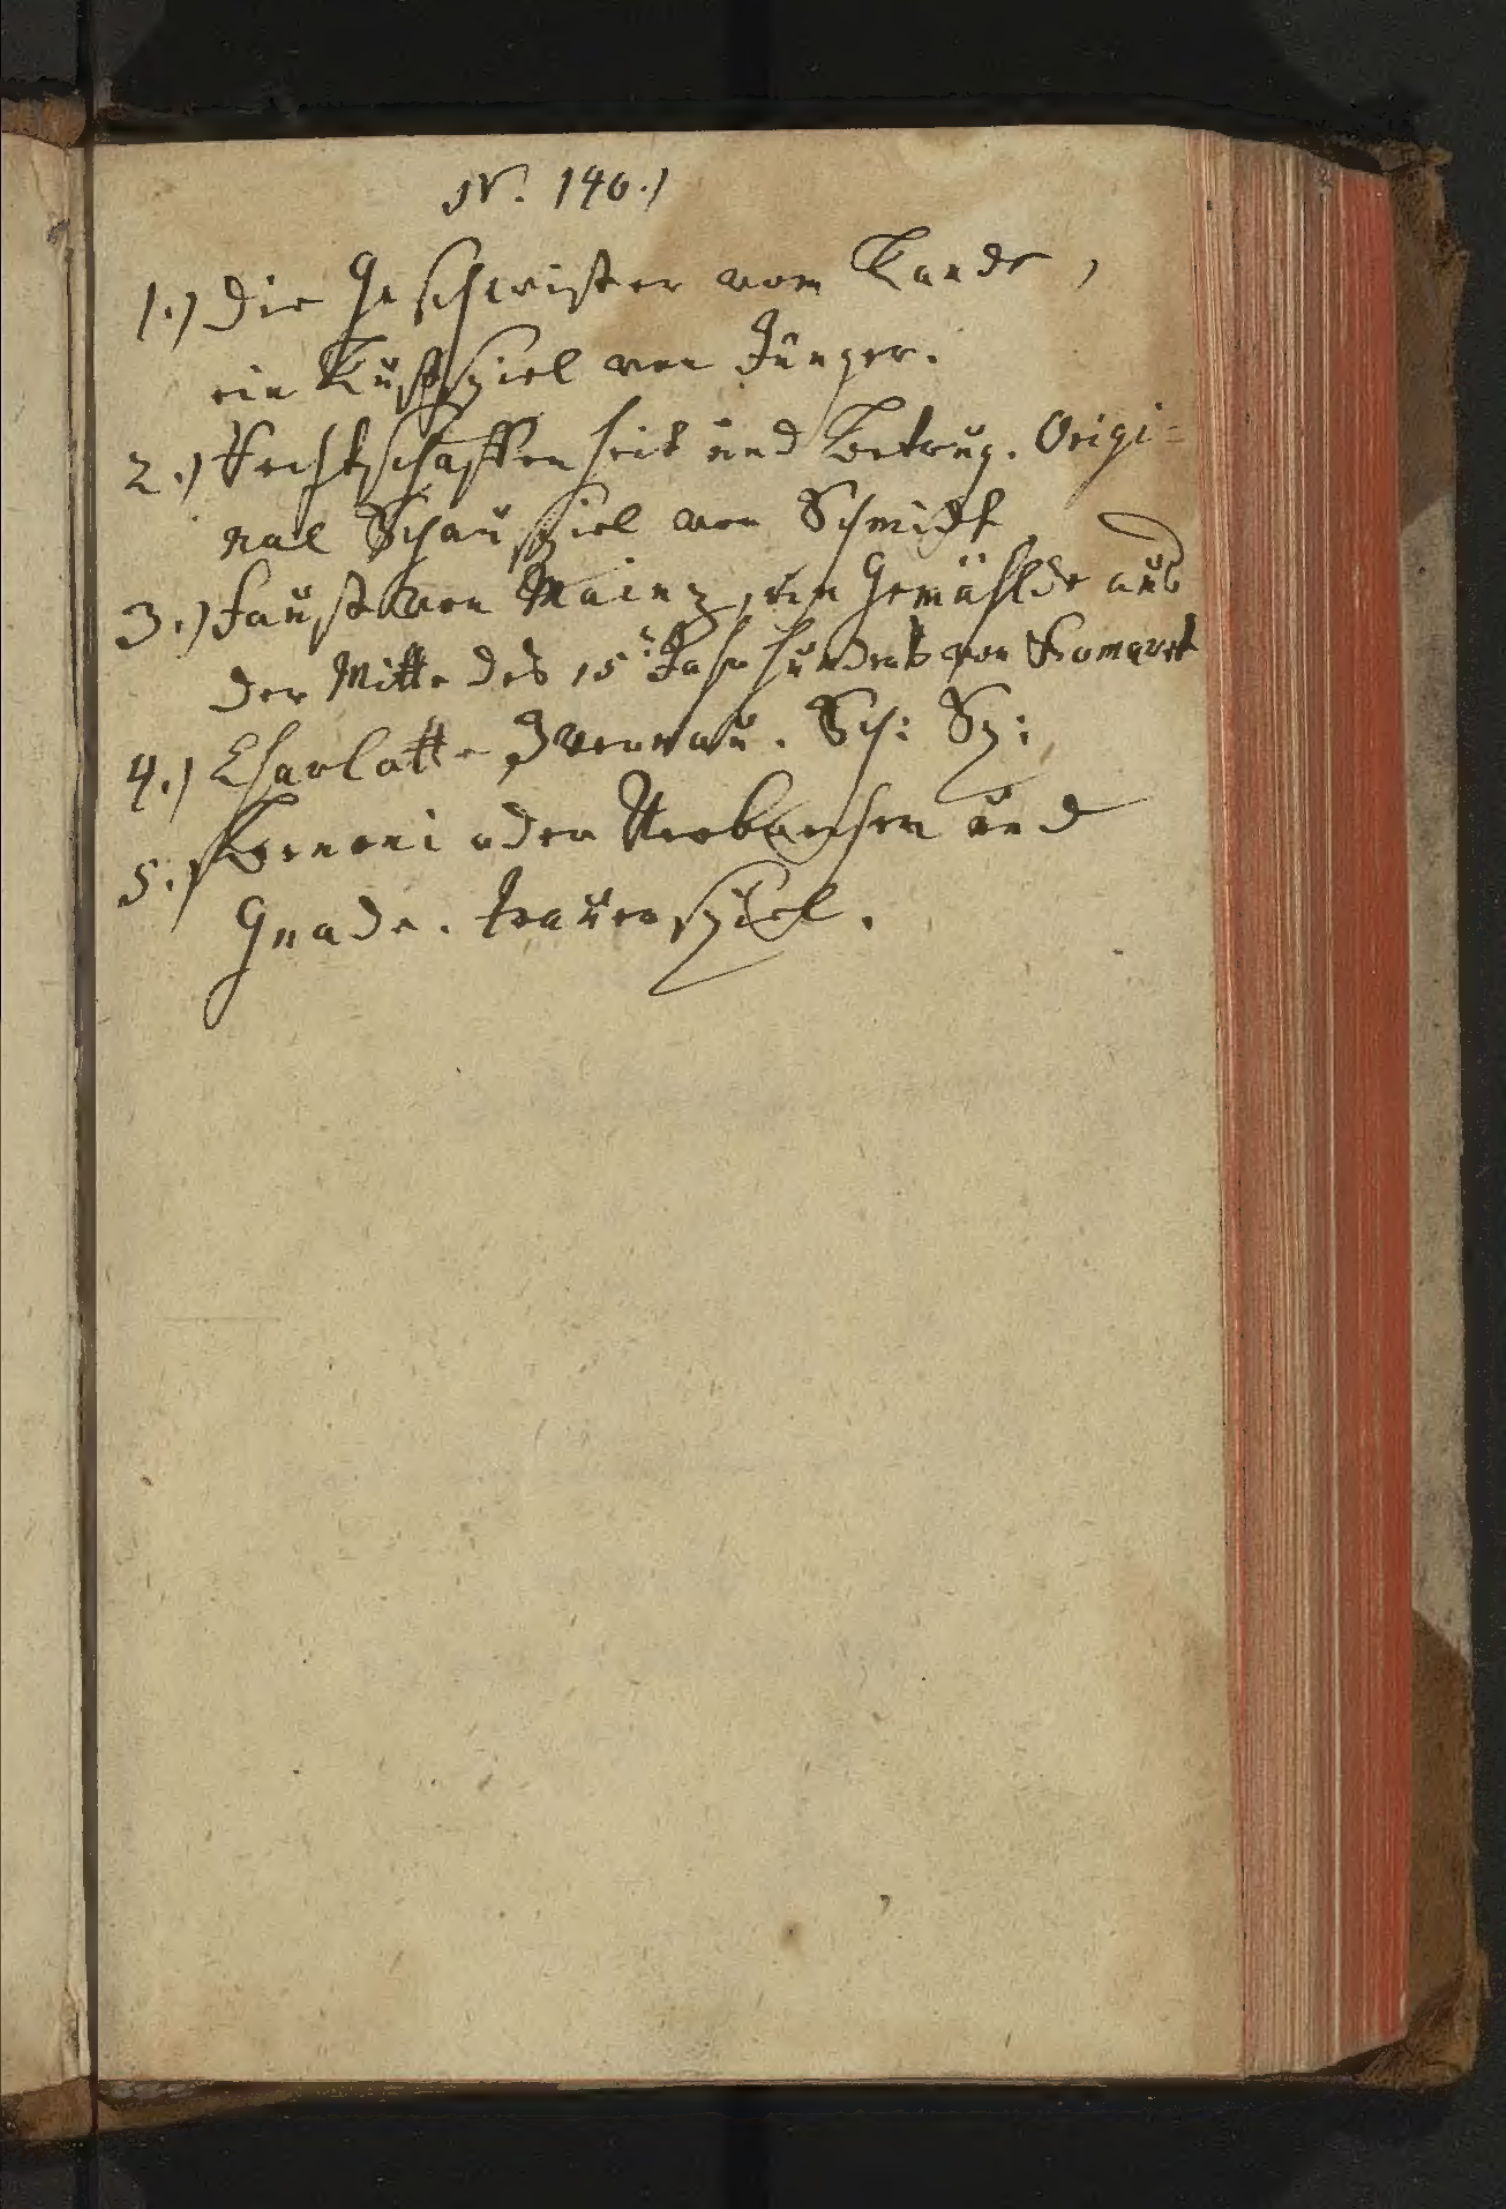 N. 140.)
1.) Die Geschwister vom Lande,
ein Lustspiel von Jünger.
2.) Rechtschaffenheit und Betrug. Origi=
nal Schauspiel von Schmidt
3.) Faust von Mainz, ein Gemählde aus
der Mitte des 15t Jahrhunderts von Komareck
4.) Charlotte Sch: Sp:
5.) oder Verbrechen und
Gnade. Trauerspiel.